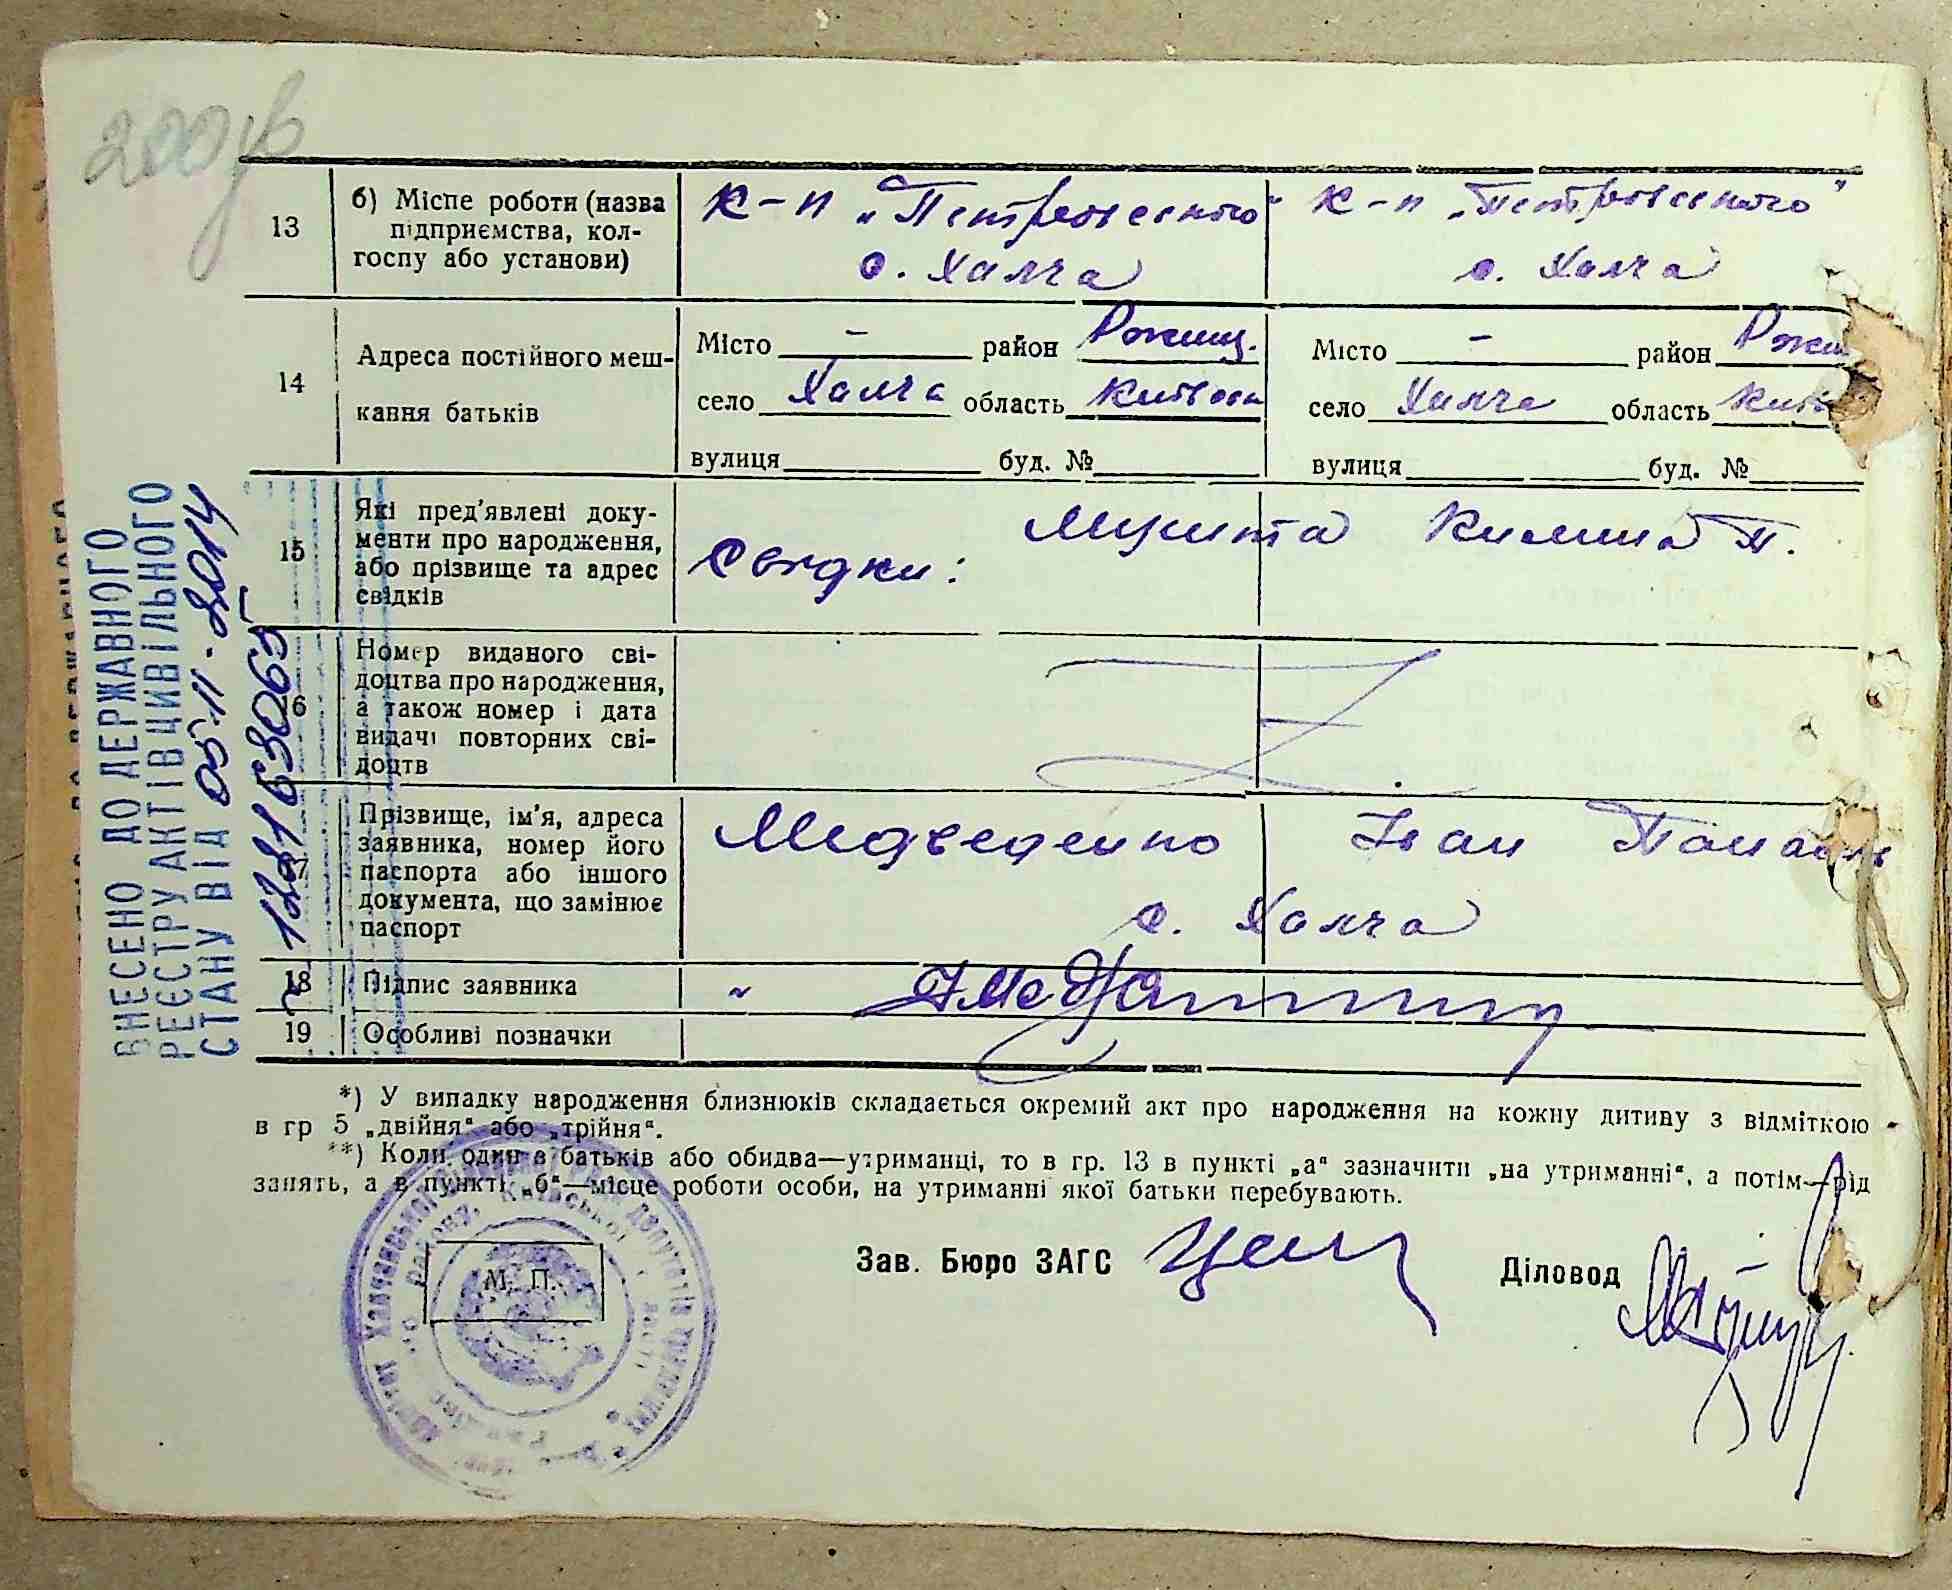 200зв
13
б) Місце роботи (назва
підприємства, кол-
госпу або установи)
к-п „Петровського"
с. Халча
к-п „Петровського"
с. Халча
14
Адреса постійного меш-
кання батьків
Місто – район Ржищ.
село Халча область Київська
вулиця буд. №
Місто – район Ржи
село Халча область Київ
вулиця буд. №
15
Які пред'явлені доку-
менти про народження,
або прізвище та адрес
свідків
Свідки: Микита Килина П.
16
Номер виданого сві-
доцтва про народження,
а також номер і дата
видачі повторних сві-
доцтв
17
Прізвище, ім'я, адреса
заявника, номер його
паспорта або іншого
документа, що замінює
паспорт
Медведенко Іван Панас
с. Халча
18
Підпис заявника
19
Особливі позначки
*) У випадку народження близнюків складається окремий акт про народження на кожну дитину з відміткою
в гр 5 „двійня“ або „трійня“.
**) Коли один з батьків або обидва—утриманці, то в гр. 13 в пункті „а“ зазначити „на утриманні“, а потім—рід
занять, а в пункті „б“—місце роботи особи, на утриманні якої батьки перебувають.
Зав. Бюро ЗАГС
Діловод
М. П.
ВНЕСЕНО ДО ДЕРЖАВНОГО
РЕЄСТРУ АКТІВ ЦИВІЛЬНОГО
СТАНУ ВІД 05-11-2014